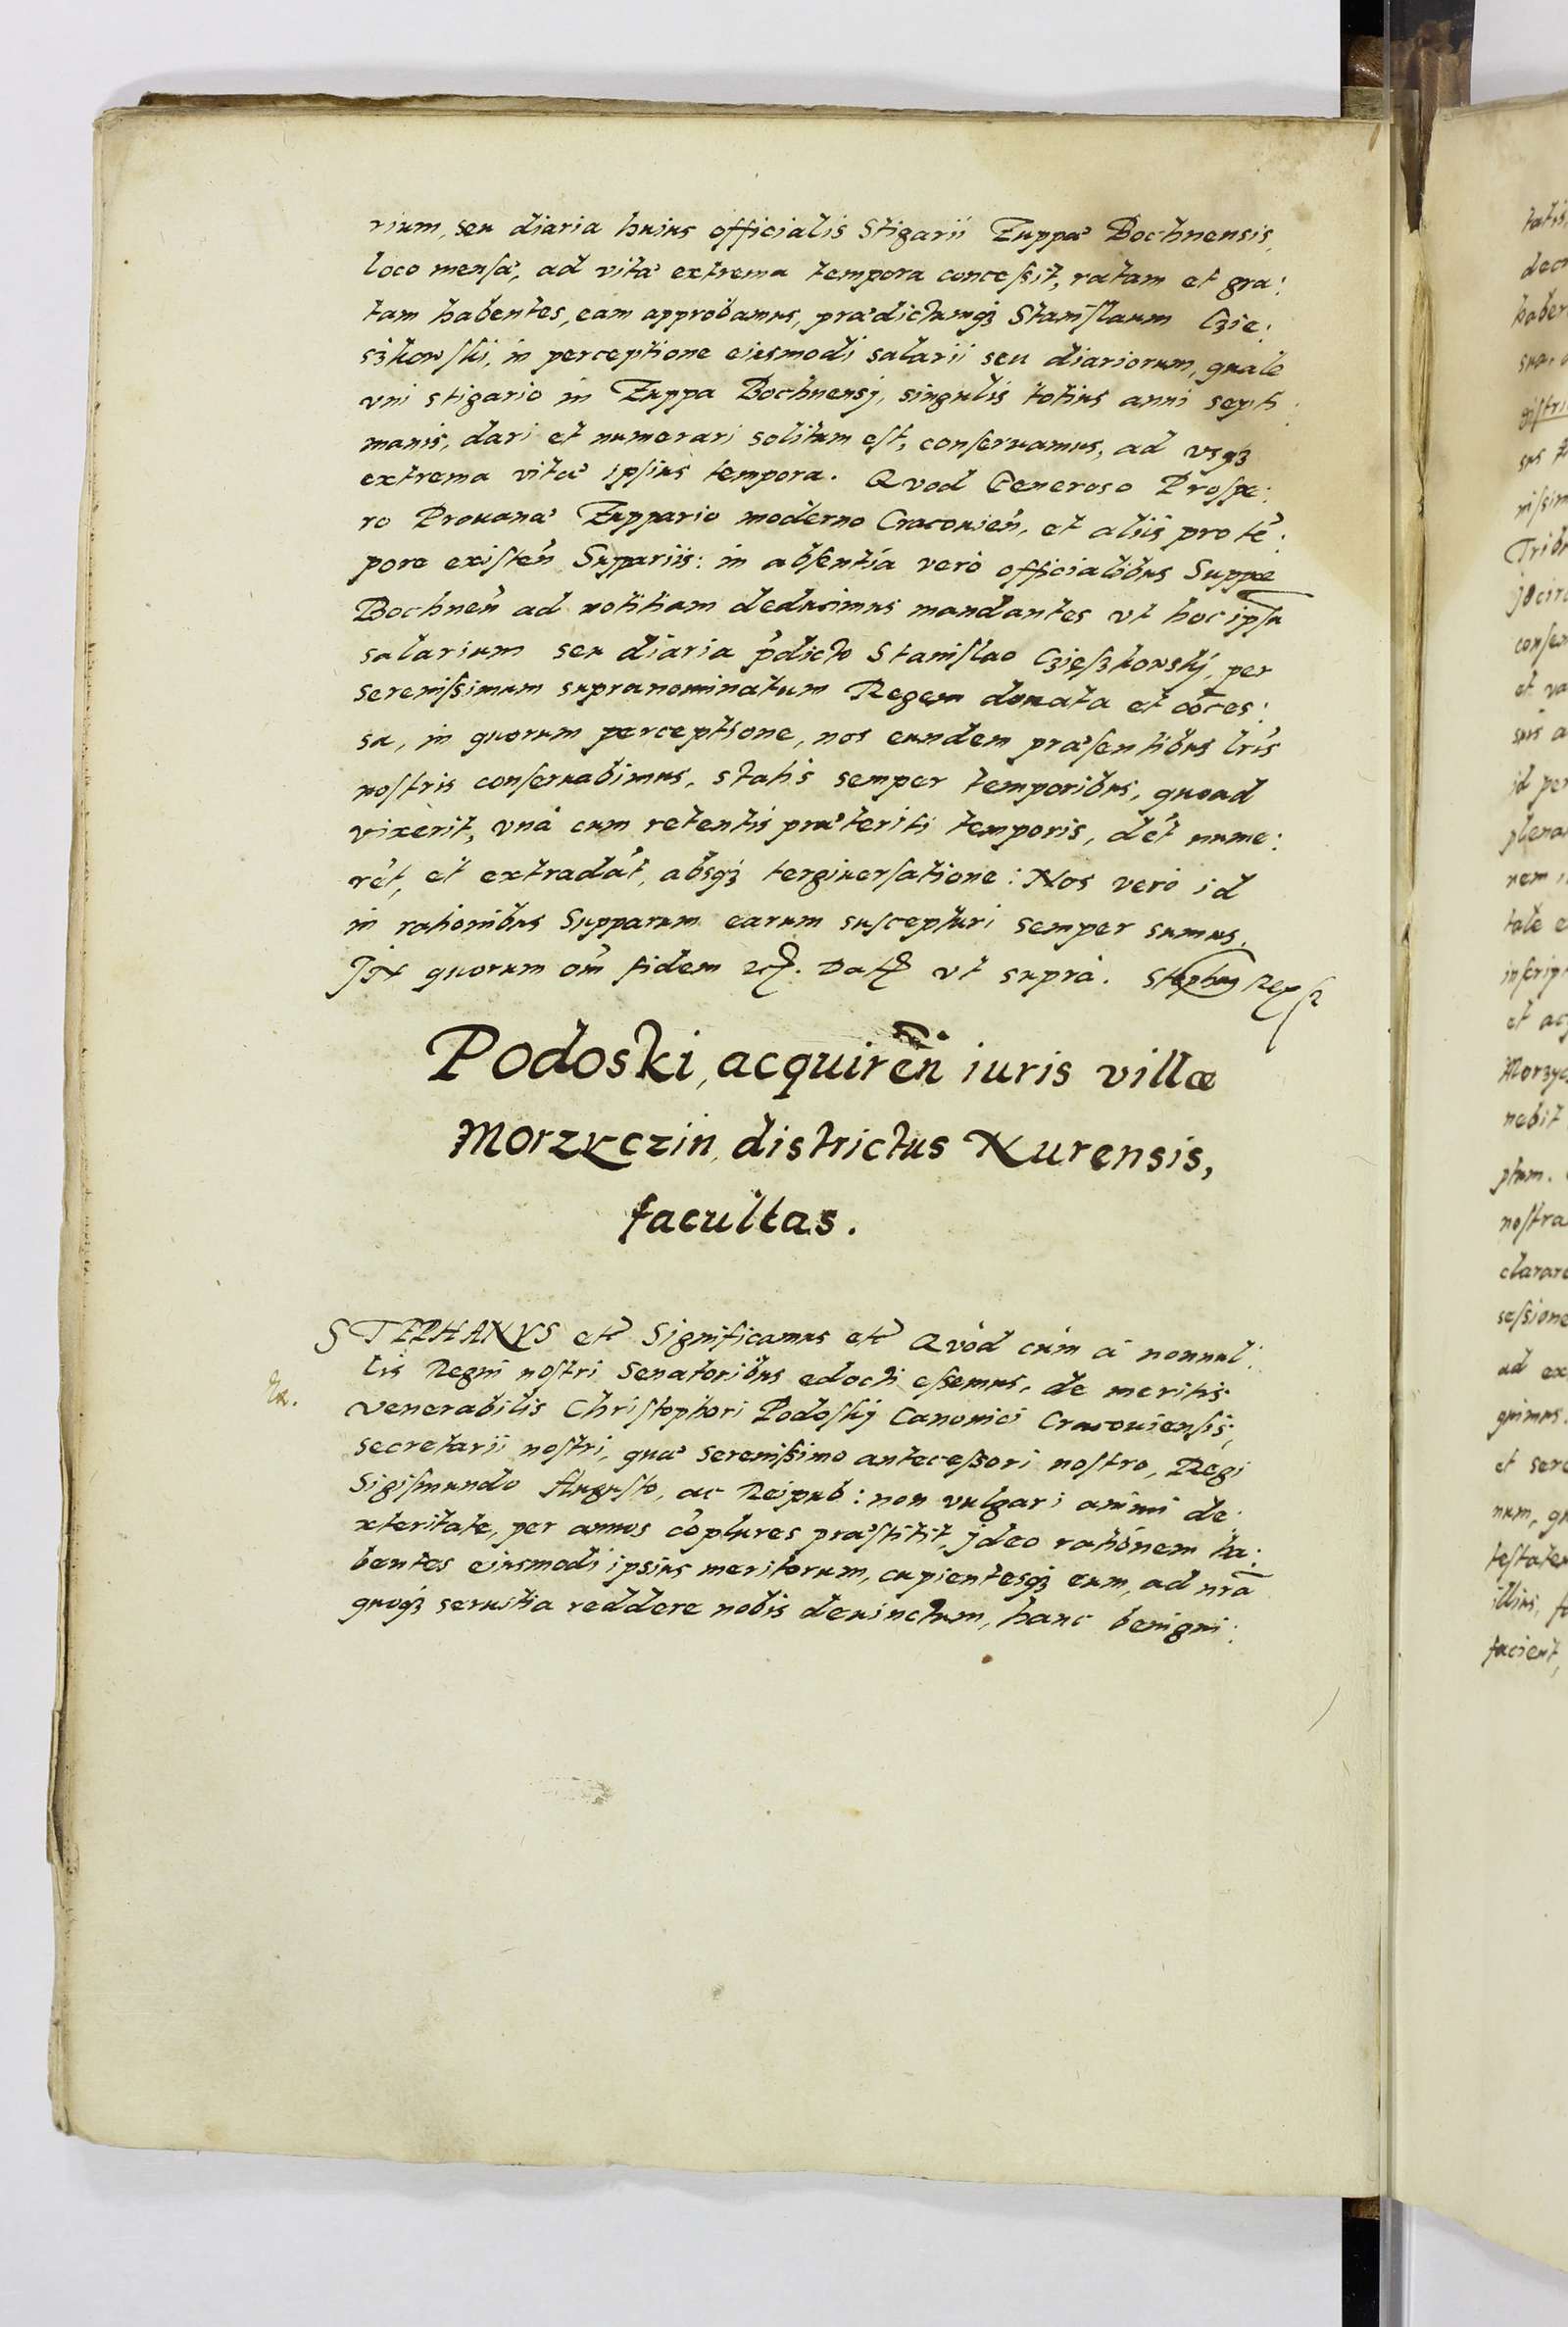 rium, seu diaria huius officialis Stigarii Zuppæ Bochnensis,
loco mensæ, ad vitæ extrema tempora conceſsit, ratam et gra:
tam habentes, eam approbamus, prædictumqȝ Staniſlaum Czie:
sżkowſki, in perceptione eiusmodi salarii seu diariorum, quale
vni stigario in Zuppa Bochnensj, singulis totius anni septi:
manis, dari et numerari solitum eſt, conſeruamus, ad vsqȝ
extrema vitæ ipſius tempora. Qvod Generoso Proſpe:
ro Prouanæ Zuppario moderno Cracouień, et aliis pro tē:
pore exiſteń Suppariis: in abſentia verò officialibus Suppæ
Bochneń ad notitiam deducimus mandantes vt hoc ipſū
salarium seu diaria p̄dicto Staniſlao Czieſzkowskj, per
sereniſsimum supranominatum Regem donata et cōces:
sa, in quorum perceptione, nos eundem præſentibus lr̄is
noſtris conſeruabimus, statis semper temporibus, quoad
vixerit, vnà cum retentis præteriti temporis, dēt nume:
rēt, et extradāt, absqȝ tergiuerſatione: Nos verò id
in rationibus Supparum earum suscepturi semper sumus.
IN quorum om̄ fidem etc. Dat vt suprà. Stephus Rex sst
Podoski, acquireń iuris villæ
Morzyczin, districtus Nurensis,
facultas.
STEPHANVS etc Significamus etc Qvòd cùm à nonnul:
lis Regni noſtri Senatoribus edocti eſsemus, de meritis
venerabilis Chriſtophori Podoſkj Canonici Cracouienſis,
secretarii noſtri, quæ sereniſsimo anteceſsori noſtro, Regi
Sigiſmundo Auguſto, ac Reipub: non vulgari animi de:
xteritate, per annos cōplures præſtitit, jdeo rationem ha:
bentes eiusmodi ipsius meritorum, cupientesqȝ eum, ad nr̄a
quoqȝ seruitia reddere nobis deuinctum, hanc benigni: